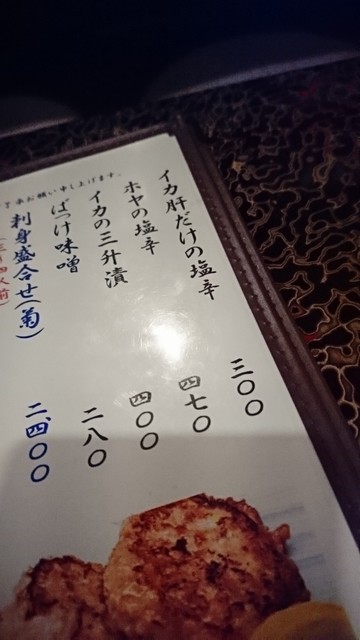 イカ肝だけの塩辛 三〇〇
ホヤの塩辛 四七〇
イカの三升漬 四〇〇
ばっけ味噌 二八〇
刺身盛合せ(菊) 二、四〇〇
お願い申し上げます。